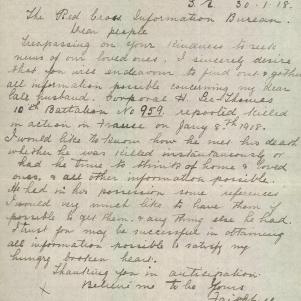 30.1.18.
The Red Cross Information Bureau.
Dear people
Trespassing on your kindness to seek
news of our loved ones. I sincerely desire
that you will endeavour to find out & gather
all information possible concerning my dear
late husband. Corporal H. Thomas
10th Battalion No 959. reported killed
in action in France on Jany 8th 1918.
I would like to know how he met his death
whether he was killed instantaneously or
had he time to think of home & loved
ones, & all other information possible.
He had in his possession some references
I would very much like to have them if
possible to get them & any thing else he had.
I trust you may be successful in obtaining
all information possible to satisfy my
hungry broken heart.
Thanking you in anticipation.
Believe me to be Yours